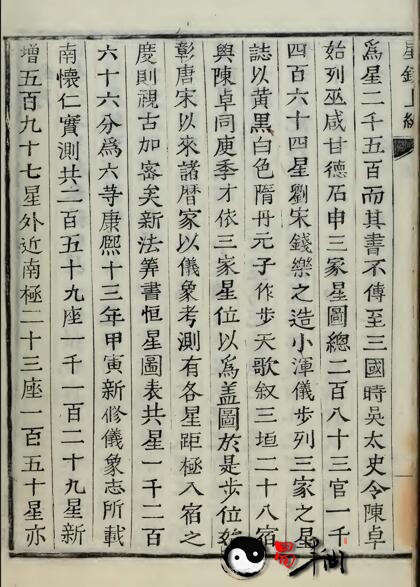 為星二千五百而其書不傳至三國時吳太史令陳卓
始列巫咸甘德石申三家星圖總二百八十三官一千
四百六十四星劉宋錢樂之造小渾儀步列三家之星
誌以黃黑白色隋丹元子作步天歌叙三垣二十八宿
與陳卓同庾季才依三家星位以為盖圖於是步位
彰唐宋以來諸曆家以儀象考測有各星距極入宿之
度則視古加密矣新法筭書恒星圖表共星一千二百
六十六分為六等康熙十三年甲寅新修儀象志所載
南懷仁實測共二百五十九座一千一百二十九星新
增五百九十七星外近南極二十三座一百五十星亦